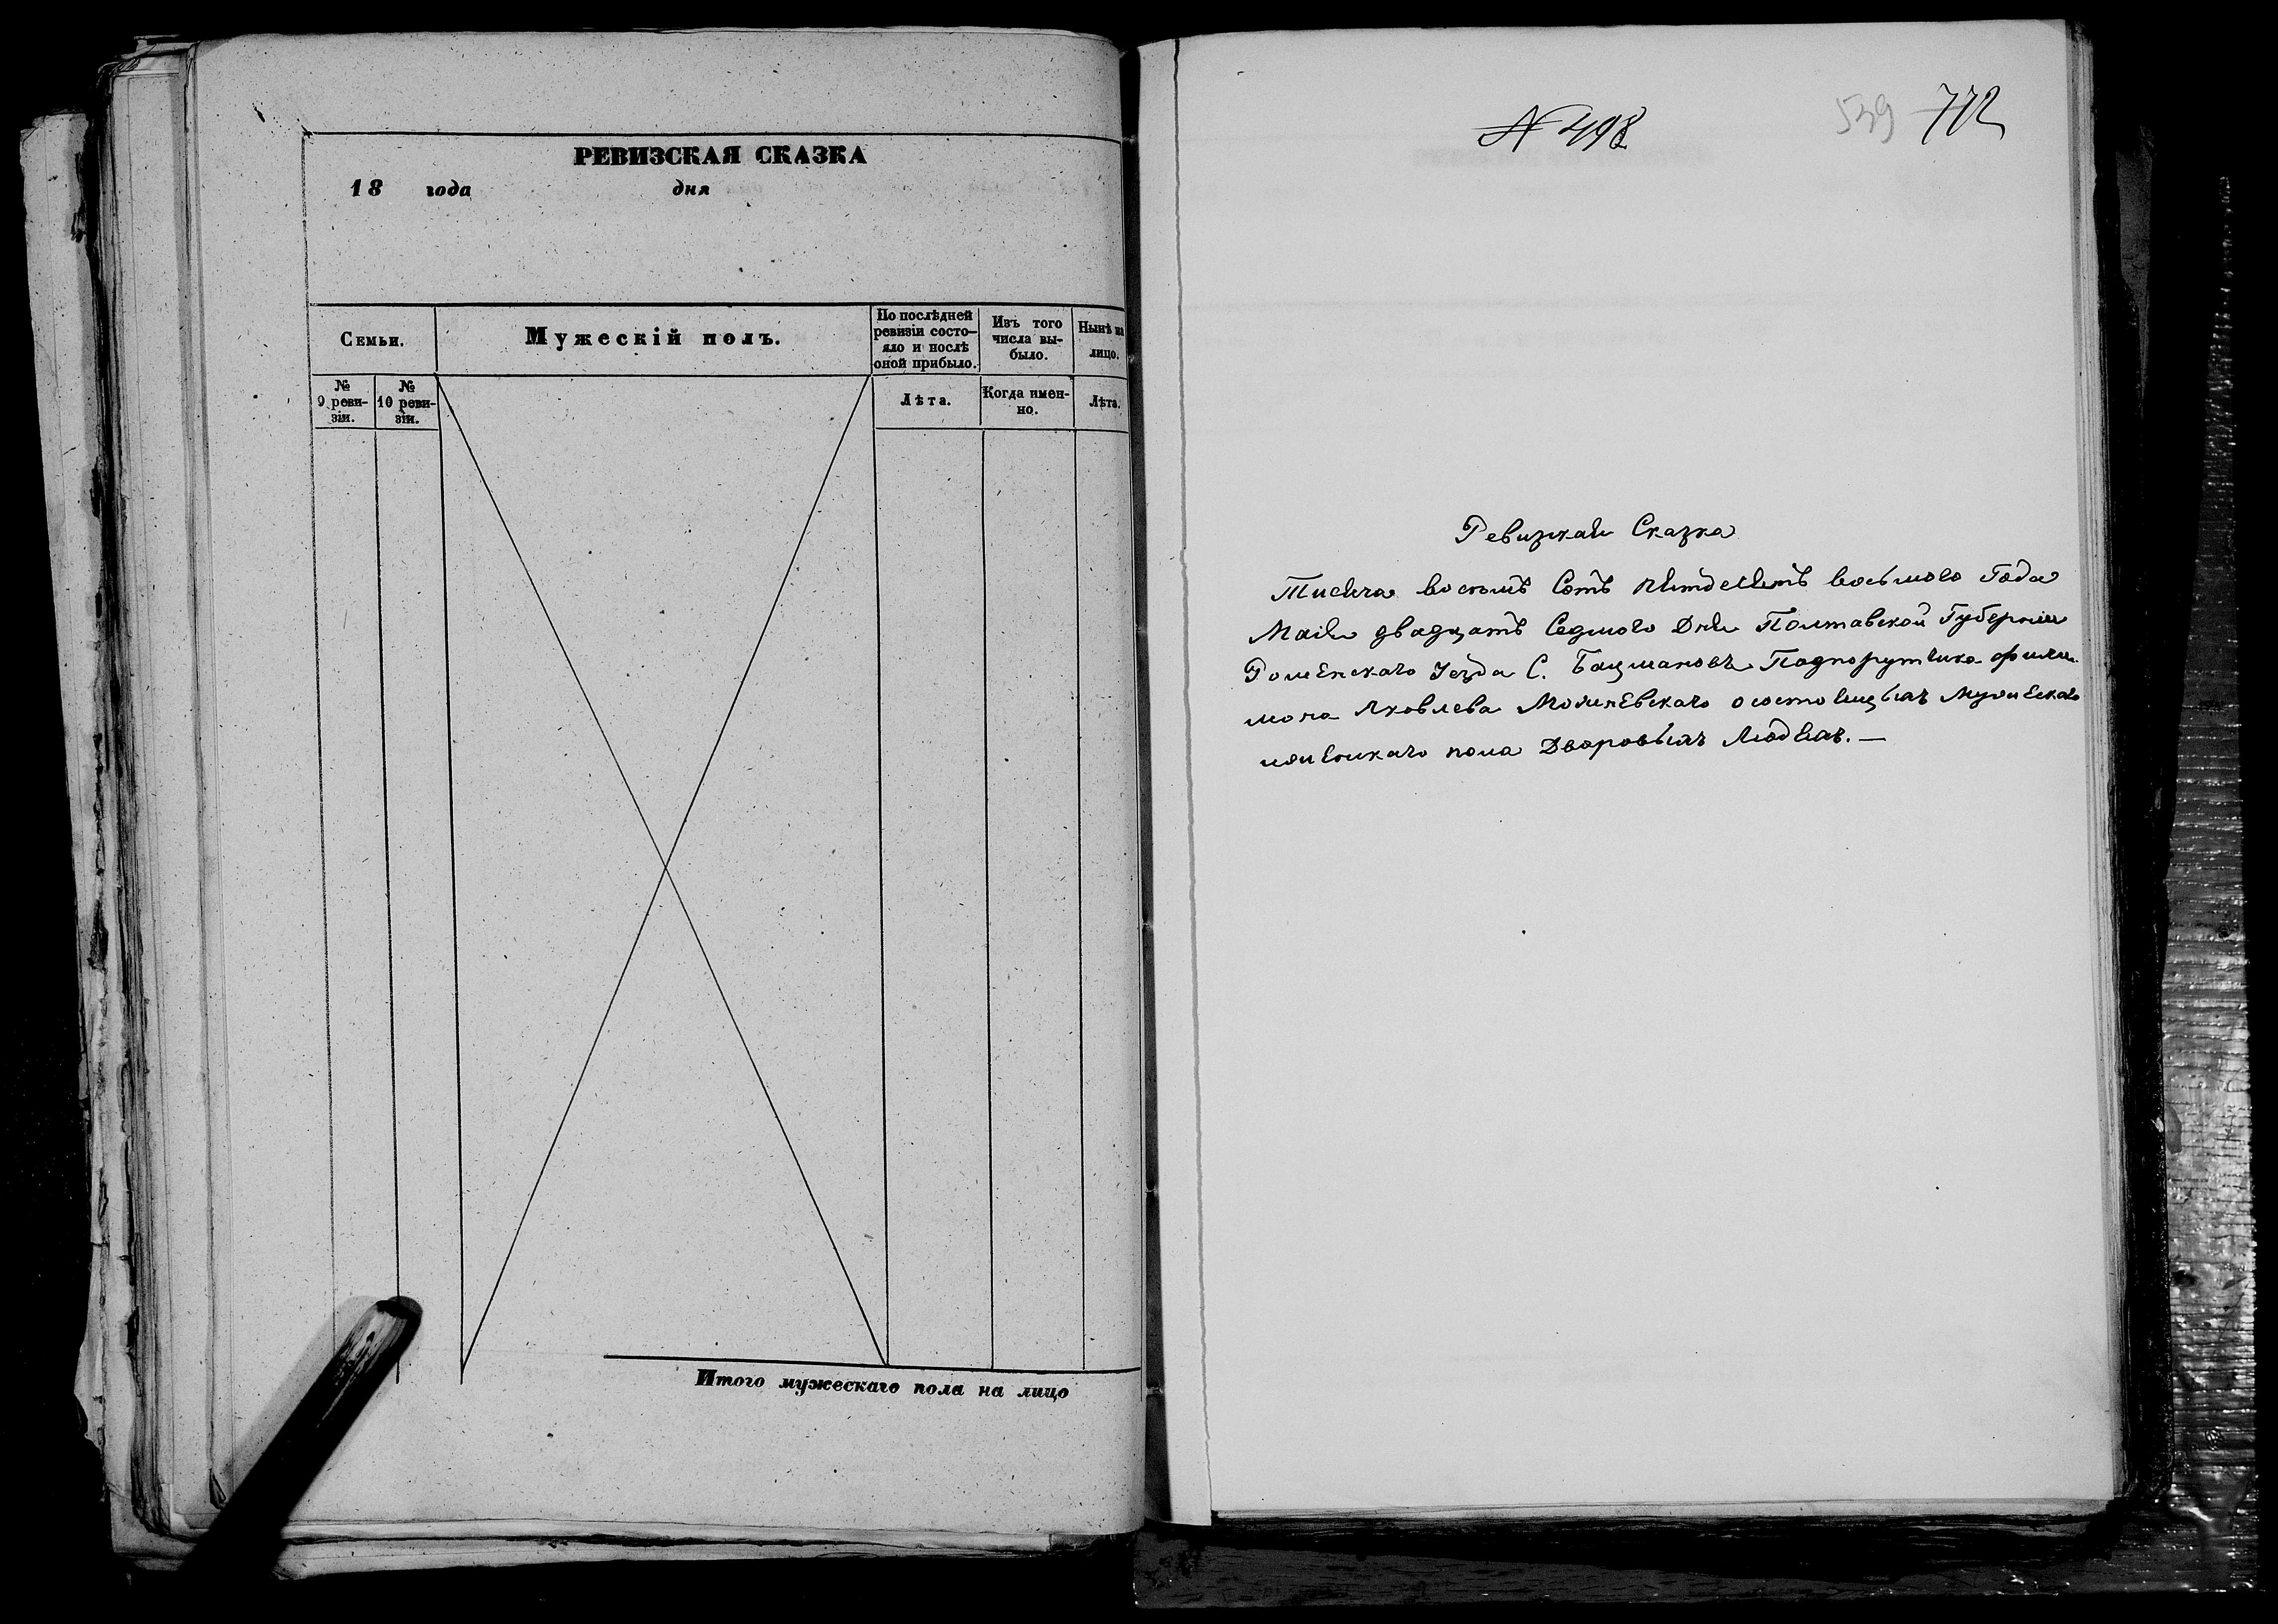 РЕВИЗСКАЯ СКАЗКА
18 года дня
Семьи.
Мужескій полъ.
По послѣдней
ревизіи состо-
яло и послѣ
оной прибыло.
Изъ того
числа вы-
было.
Нынѣ на
лицо.
№
9 реви-
зіи.
№
10 реви-
зіи.
Лѣта.
Когда имен-
но.
Лѣта.
Итого мужескаго пола на лицо
N 498
539 772
Ревизкая Сказка
Тисяча восемъ Сотъ пятдесятъ восьмого Года
Маія двадцатъ Седмого Дня Полтавской Губерніи
Роменскаго Уезда С. Бацмановъ Подпорутчика фили
мона Яковлева Могилевскаго о состоящыхъ Мужескаго
иженскаго пола Дворовыхъ Людяхъ. —